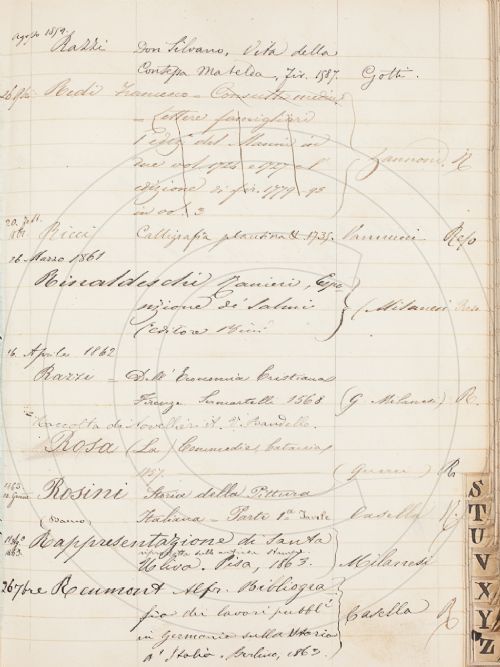 Agosto 1859.
Razzi Don Silvano, Vita della
Contessa Matelda, Fir. 1587. Gotti
Redi Francesco = Consulti medici
= Lettere famigliari
1ª ediz. del Manni in
due vol. e l'
edizione di fir. 1779-95
in vol. 3 Zannoni. R
20 febb.
1861 Ricci Calligrafia plantina 4. 1735. Vannucci Reso
26 Marzo 1861
Rinaldeschi Ranieri, Espo
sizione di Salmi (Milanesi Reso
(editore
16 Aprile 1862
Razzi = Dell' Economia Cristiana
Firenze Sermartelli 1568 (G. Milanesi) R.
= Raccolta di Novellieri It. Bandello.
Rosa (La) Commedia, Catania
(Guerri R
1863.
Rosini Storia della Pittura
Italiana = Parte 1ª Tavole Casella R.
Rappresentazione di Santa
1863. riprodotta sull' antica stampa.
Uliva. Pisa, 1863. Milanesi
26 7bre Reumont Alfr. Bibliogra
fia dei lavori pubbl.
in Germania sulla Storia Casella R
d' Italia. Berlino, 1863.
S
T
U
V
X
Y
Z